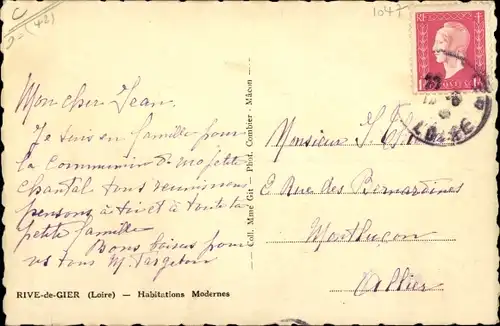 (42)
1047
RF
POSTES
LOIRE
Mon cher Jean.
Je suis en famille pour
la Communion de ma petite
Chantal tous réunis nous
pensons à toi et à toute ta
petite famille
Bons baisers pour
vs tous M.
Coll. Mme Git - Phot. Combier - Mâcon
Monsieur
2 Rue des Bernardines
Montluçon
Allier
RIVE-de-GIER (Loire) — Habitations Modernes